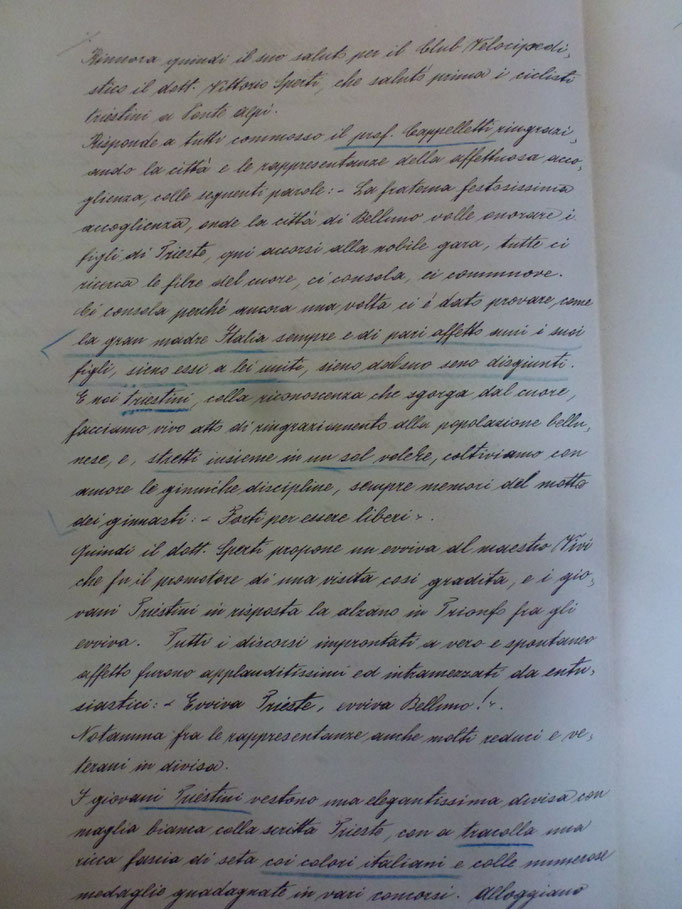 Rinnova quindi il suo saluto per il Club Velocipedi-
stico il dott. Vittorio Sperti, che salutò prima i ciclisti
triestini a Ponte Alpi.
Risponde a tutti commosso il prof. Cappelletti ringrazi-
ando la città e le rappresentanze della affettuosa acco-
glienza, colle seguenti parole: - La fraterna festosissima
accoglienza, onde la città di Belluno volle onorare i
figli di Trieste, qui accorsi alla nobile gara, tutte ci
ricerca le fibre del cuore, ci consola, ci commuove.
Ci consola perché ancora una volta ci è dato provare, come
la gran madre Italia sempre e di pari affetto ami i suoi
figli, sieno essi a lei uniti, sieno dal suo seno disgiunti.
E noi triestini, colla riconoscenza che sgorga dal cuore,
facciamo vivo atto di ringraziamento alla popolazione bellu-
nese, e, stretti insieme in un sol volere, coltiviamo con
amore le ginniche discipline, sempre memori del motto
dei ginnasti: « Forti per essere liberi ».
Quindi il dott. Sperti propone un evviva al maestro Vivi
che fu il promotore di una visita così gradita, e i gio-
vani Triestini in risposta la alzano in Trionfo fra gli
evviva. Tutti i discorsi improntati a vero e spontaneo
affetto furono applauditissimi ed intramezzati da entu-
siastici: « Evviva Trieste, evviva Belluno! ».
Notammo fra le rappresentanze anche molti reduci e ve-
terani in divisa.
I giovani Triestini vestono una elegantissima divisa con
maglia bianca colla scritta Trieste, con a tracolla una
ricca fascia di seta coi colori italiani e colle numerose
medaglie guadagnate in vari concorsi. Alloggiano